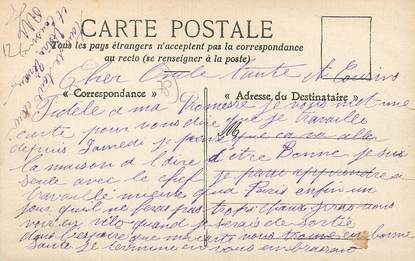 CARTE POSTALE
Tous les pays étrangers n'acceptent pas la correspondance
au recto (se renseigner à la poste)
Cher Oncle tante et Cousins
« Correspondance »
« Adresse du Destinataire »
Fidele a ma Promesse je vous met une
carte pour vous dire que je travaille
depuis Samedi je pense que ca va aller
la maison a l'air d'être Bonne je suis
seule avec le chef je pense apprendre a
travailler mieux que Paris enfin un
jour qu'il ne feras pas trop chaud j'irai vous
voir en vélo quand je serais de sortie
dans l'espoir que ma carte vous trouve en bonne
Santé je termine en vous embrassant